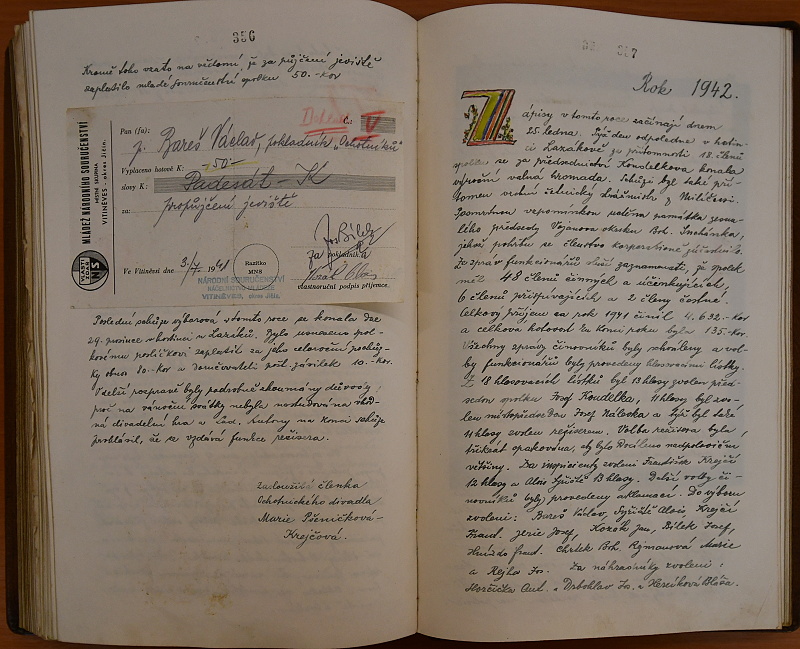 356
Kromě toho vzato na vědomí, že za půjčení jeviště
zaplatilo mládež. souručenství spolku 50.-kor
MLÁDEŽ NÁRODNÍHO SOURUČENSTVÍ
MÍSTNÍ SKUPINA
VITINĚVES - okres Jičín.
VLASTI ZDAR
NS
Č.:
V
Pan (fa): p. Bareš Václav, pokladník "Ochotníků"
Vyplacena hotově K: 50.-
slovy K: Padesát - K
za: propůjčení jeviště
Za pokladníka
Ve Vitiněvsi dne 3/7. 1941
Razítko
MNS
NÁRODNÍ SOURUČENSTVÍ
VITINĚVES, okres Jičín.
vlastnoruční podpis příjemce.
Poslední schůze výborová v tomto roce se konala dne
29. prosince v hostinci u Lazáků. Bylo usneseno spol-
kovému poslíčkovi zaplatit za jeho celoroční pochůz-
ky obnos 80.-kor a doručovateli pošt. zásilek 10.-kor.
V delší rozpravě byly podrobně zkoumány důvody,
proč na vánoční svátky nebyla nastudována vhod-
ná divadelní hra a Lad. na konci schůze
prohlásil, že se vzdává funkce režiséra.
zasloužilá členka
Ochotnického divadla
Marie Pšeničková-
Krejčová.
357
Rok 1942.
Zápisy v tomto roce začínají dnem
25. ledna. Týž den odpoledne v hostin-
ci Lazákově za přítomnosti 18 členů
spolku se za předsednictví Koudelkova konala
výroční valná hromada. Schůzi byl také pří-
tomen vrchní četnický strážmistr z Miličevsi.
vzpomínkou uctěna památka zesnu-
lého předsedy Vojanova okrsku Boh.
jehož pohřbu se členstvo korporativně zúčastnilo.
Ze zpráv funkcionářů sluší zaznamenati, že spolek
měl 48 členů činných a účinkujících,
6 členů přispívajících a 2 členy čestné.
Celkový příjem za rok 1941 činil 4.632.-kor
a celková hotovost ku konci roku byla 135.-kor.
Všechny zprávy činovníků byly schváleny a vol-
by funkcionářů byly provedeny hlasovacími lístky.
Z 18 hlasovacích lístků byl 13 hlasy zvolen před-
sedou spolku Josef Koudelka, 11 hlasy byl zvo-
len místopředsedou Josef Kaloska a týž byl také
11 hlasy zvolen režisérem. Volba režiséra byla
třikrát opakována, aby bylo docíleno nadpoloviční
většiny. Za inspicienty zvoleni František Krejčí
12 hlasy a Alois 13 hlasy. Další volby či-
novníků byly provedeny aklamací. Do výboru
zvoleni: Bareš Václav, Alois, Krejčí
Frant. Jerie Josef, Kozák Jan, Bílek Josef,
Frant. Chrtek Boh. Rýmanová Marie
a Rejha Jos. Za náhradníky zvoleni:
Horčička Ant. a Drbohlav Jos. a Hercíková Blaža.